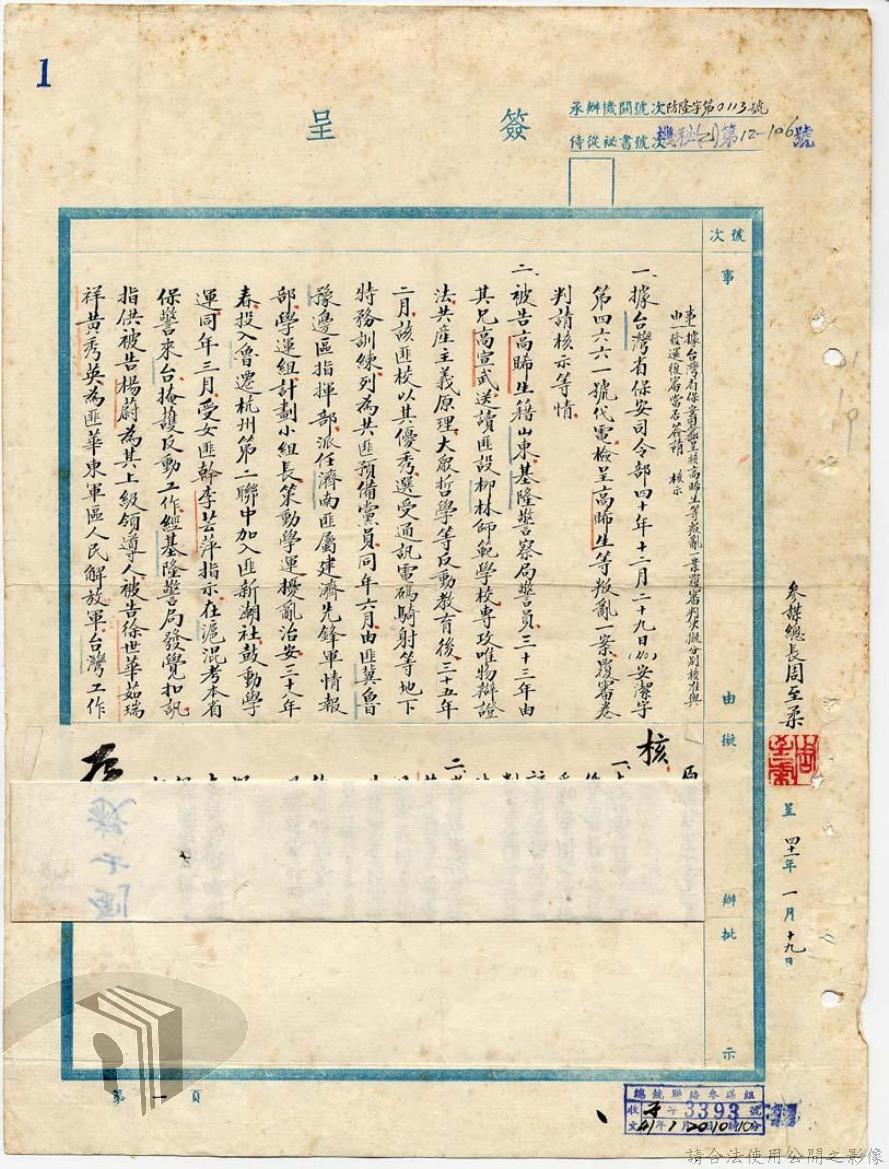 1
簽呈
承辦機關號次防隆字第0113號
侍從祕書號次機秘(乙)第12-106號
參謀總長周至柔
呈 四十一年 一月 十九日
號次
事由
擬辦
批示
事由
據台灣省保安司令部呈核高晞生等叛亂一案覆審判決擬分別核准與
發還復審當否簽請 核示
一、據台灣省保安司令部四十年十二月二十九日(40)安潔字
第四六六一號代電檢呈高晞生等叛亂一案覆審卷
判請核示等情
二、被告高晞生籍山東基隆警察局警員三十三年由
其兄高宣武送讀匪設柳林師範學校專攻唯物辯證
法共產主義原理大眾哲學等反動教育後三十五年
二月該匪校以其優秀選受通訊電碼騎射等地下
特務訓練列為共匪預備黨員同年六月由匪冀魯
豫邊區指揮部派任濟南匪屬建濟先鋒軍情報
部學運組計劃小組長策動學運擾亂治安三十八年
春投入魯遷杭州第二聯中加入匪新潮社鼓動學
運同年三月受女匪幹李芸萍指示在滬混考本省
保警來台掩護反動工作經基隆警局發覺扣訊
指供被告楊蔚為其上級領導人被告徐世華茹瑞
祥黃秀英為匪華東軍區人民解放軍台灣工作
核
第一頁
總統聯絡參謀組
收文 字3393號
41年1月20日10時10分
請合法使用公開之影像